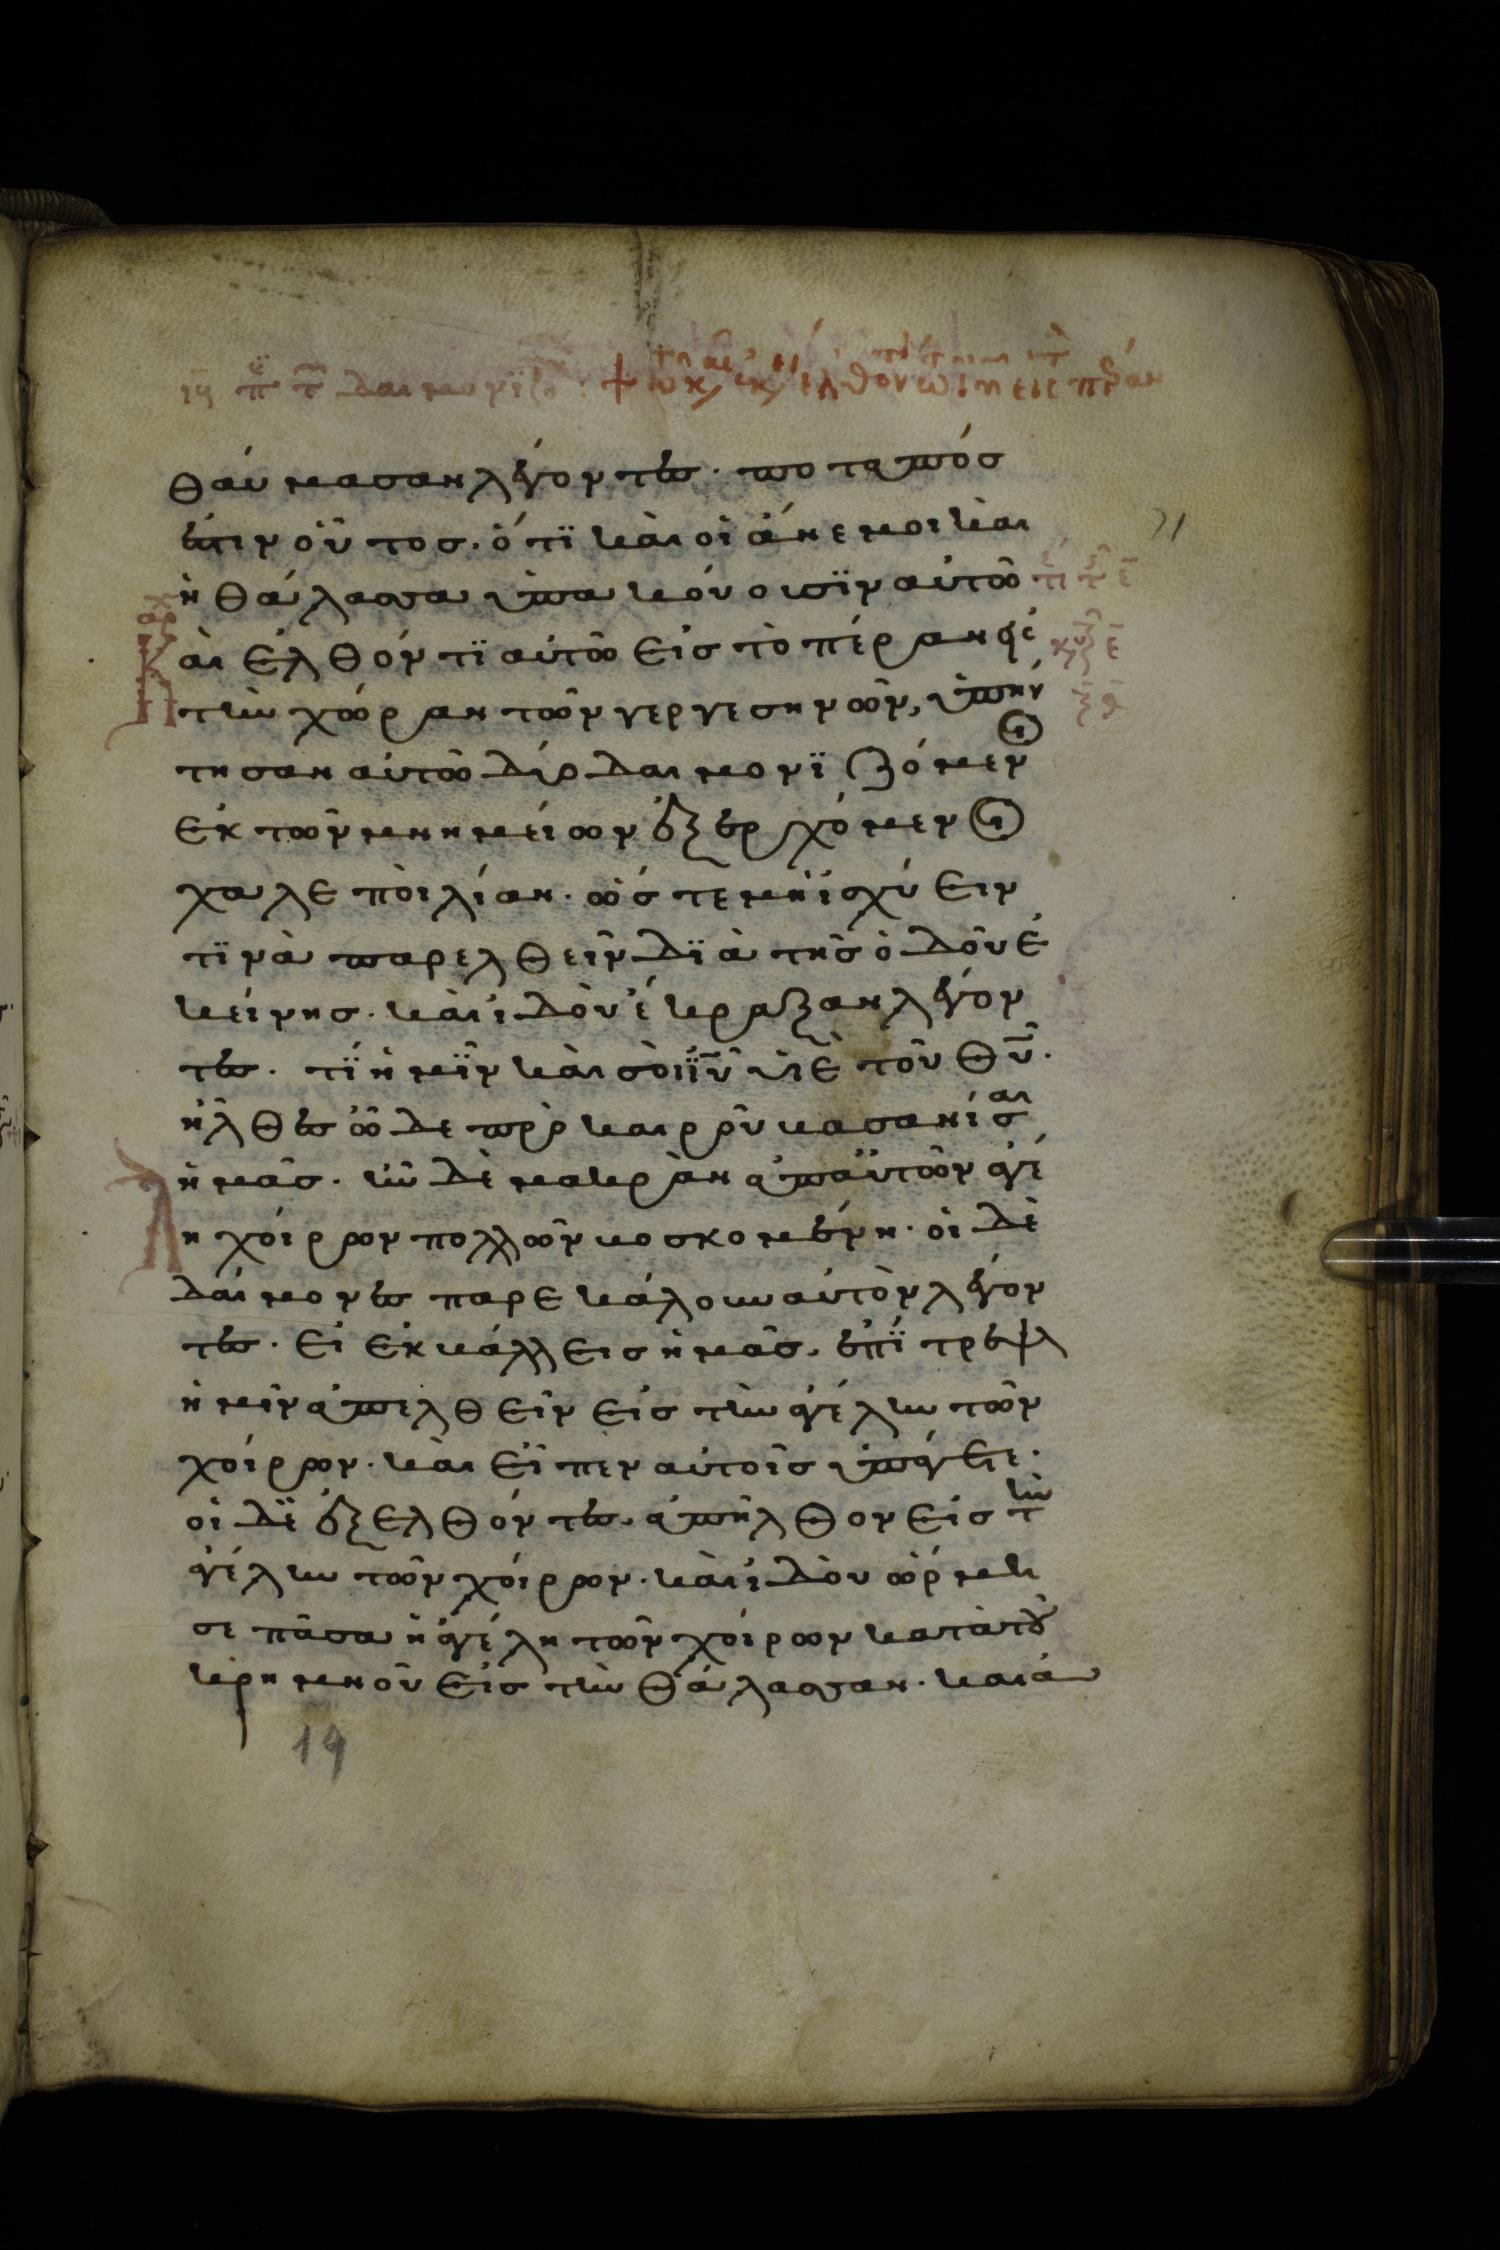 θαύμασαν λέγοντες· ποταπός
ἐστιν οὗτος· ὅτϊ καὶ οἱ ἄνεμοι καὶ
ἡ θάλασσα ὑπακούουσϊν αὐτῶ
Καὶ ἐλθόντϊ αὐτῶ εἰς τὸ πέραν εἰς
τὴν χώραν τῶν γεργεσηνῶν, ὑπήν
τησαν αὐτῶ δύο δαιμονϊζόμενοι
ἐκ τῶν μνημείων ἐξερχόμενοι
χαλεποὶ λίαν· ὥστε μὴ ἰσχύειν
τϊνὰ παρελθεῖν δϊὰ τῆς ὁδοῦ ἐ
κείνης· καὶ ἰδοὺ ἔκραξαν λέγον
τες· τΐ ἡμῖν καὶ σοὶ ἰῦ υἱὲ τοῦ θῦ·
ἦλθες ὧδε πρὸ καιροῦ βασανίσαι
ἡμᾶς· ἦν δὲ μακρὰν ἀπ' αὐτῶν ἀγέ
λη χοίρων πολλῶν βοσκομένη· οἱ δὲ
δαίμονες παρεκάλουν αὐτὸν λέγον
τες· εἰ ἐκβάλλεις ἡμᾶς, ἐπΐτρεψον
ἡμῖν ἀπελθεῖν εἰς τὴν ἀγέλην τῶν
χοίρων· καὶ εἶπεν αὐτοῖς ὑπάγετε·
οἱ δὲ ἐξελθόντες, ἀπῆλθον εἰς τὴν
ἀγέλην τῶν χοίρων· καὶ ἰδοὺ ὥρμη
σε πᾶσα ἡ ἀγέλη τῶν χοίρων κατὰ τοῦ
κρημνοῦ εἰς τὴν θάλασσαν· καὶ ἀ
19